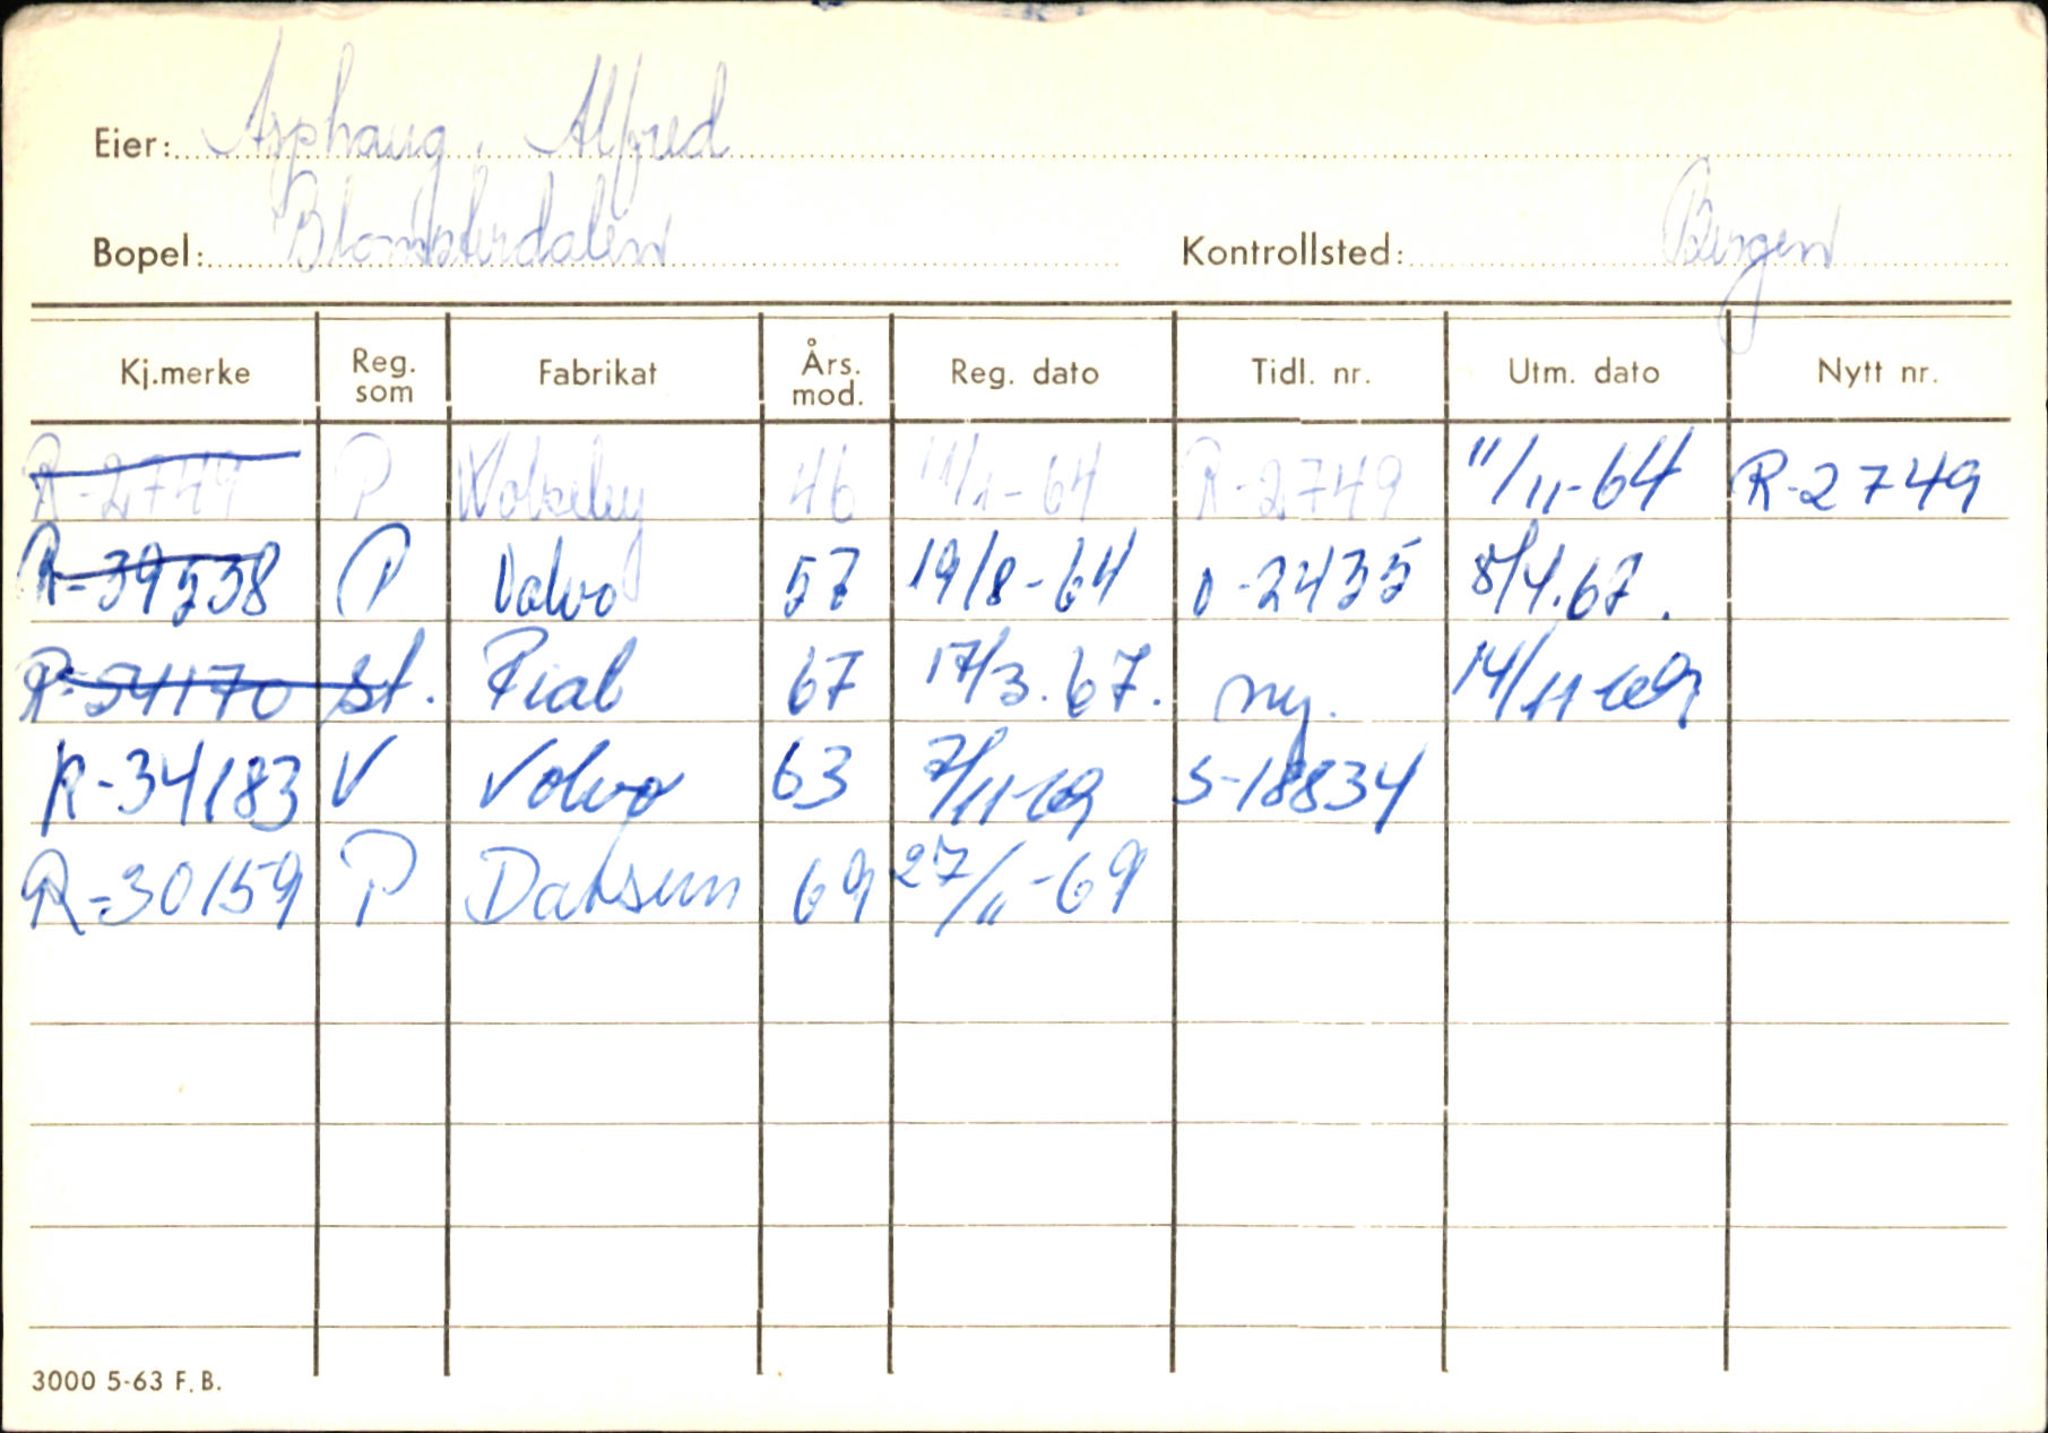 Eier: Asphaug, Alfred
Bopel: Blomsterdalen Kontrollsted: Bergen
Kj.merke Reg. som Fabrikat Års. mod. Reg. dato Tidl. nr. Utm. dato Nytt nr.
R-2749 P Wolseley 46 11/1-64 R-2749 11/11-64 R-2749
R-39538 P Volvo 57 19/8-64 O-2435 8/4.67.
R-54170 st. Fiat 67 17/3.67. ny. 14/11-69
R-34183 V Volvo 63 7/11-69 S-18834
R-30159 P Datsun 69 27/11-69
3000 5-63 F.B.